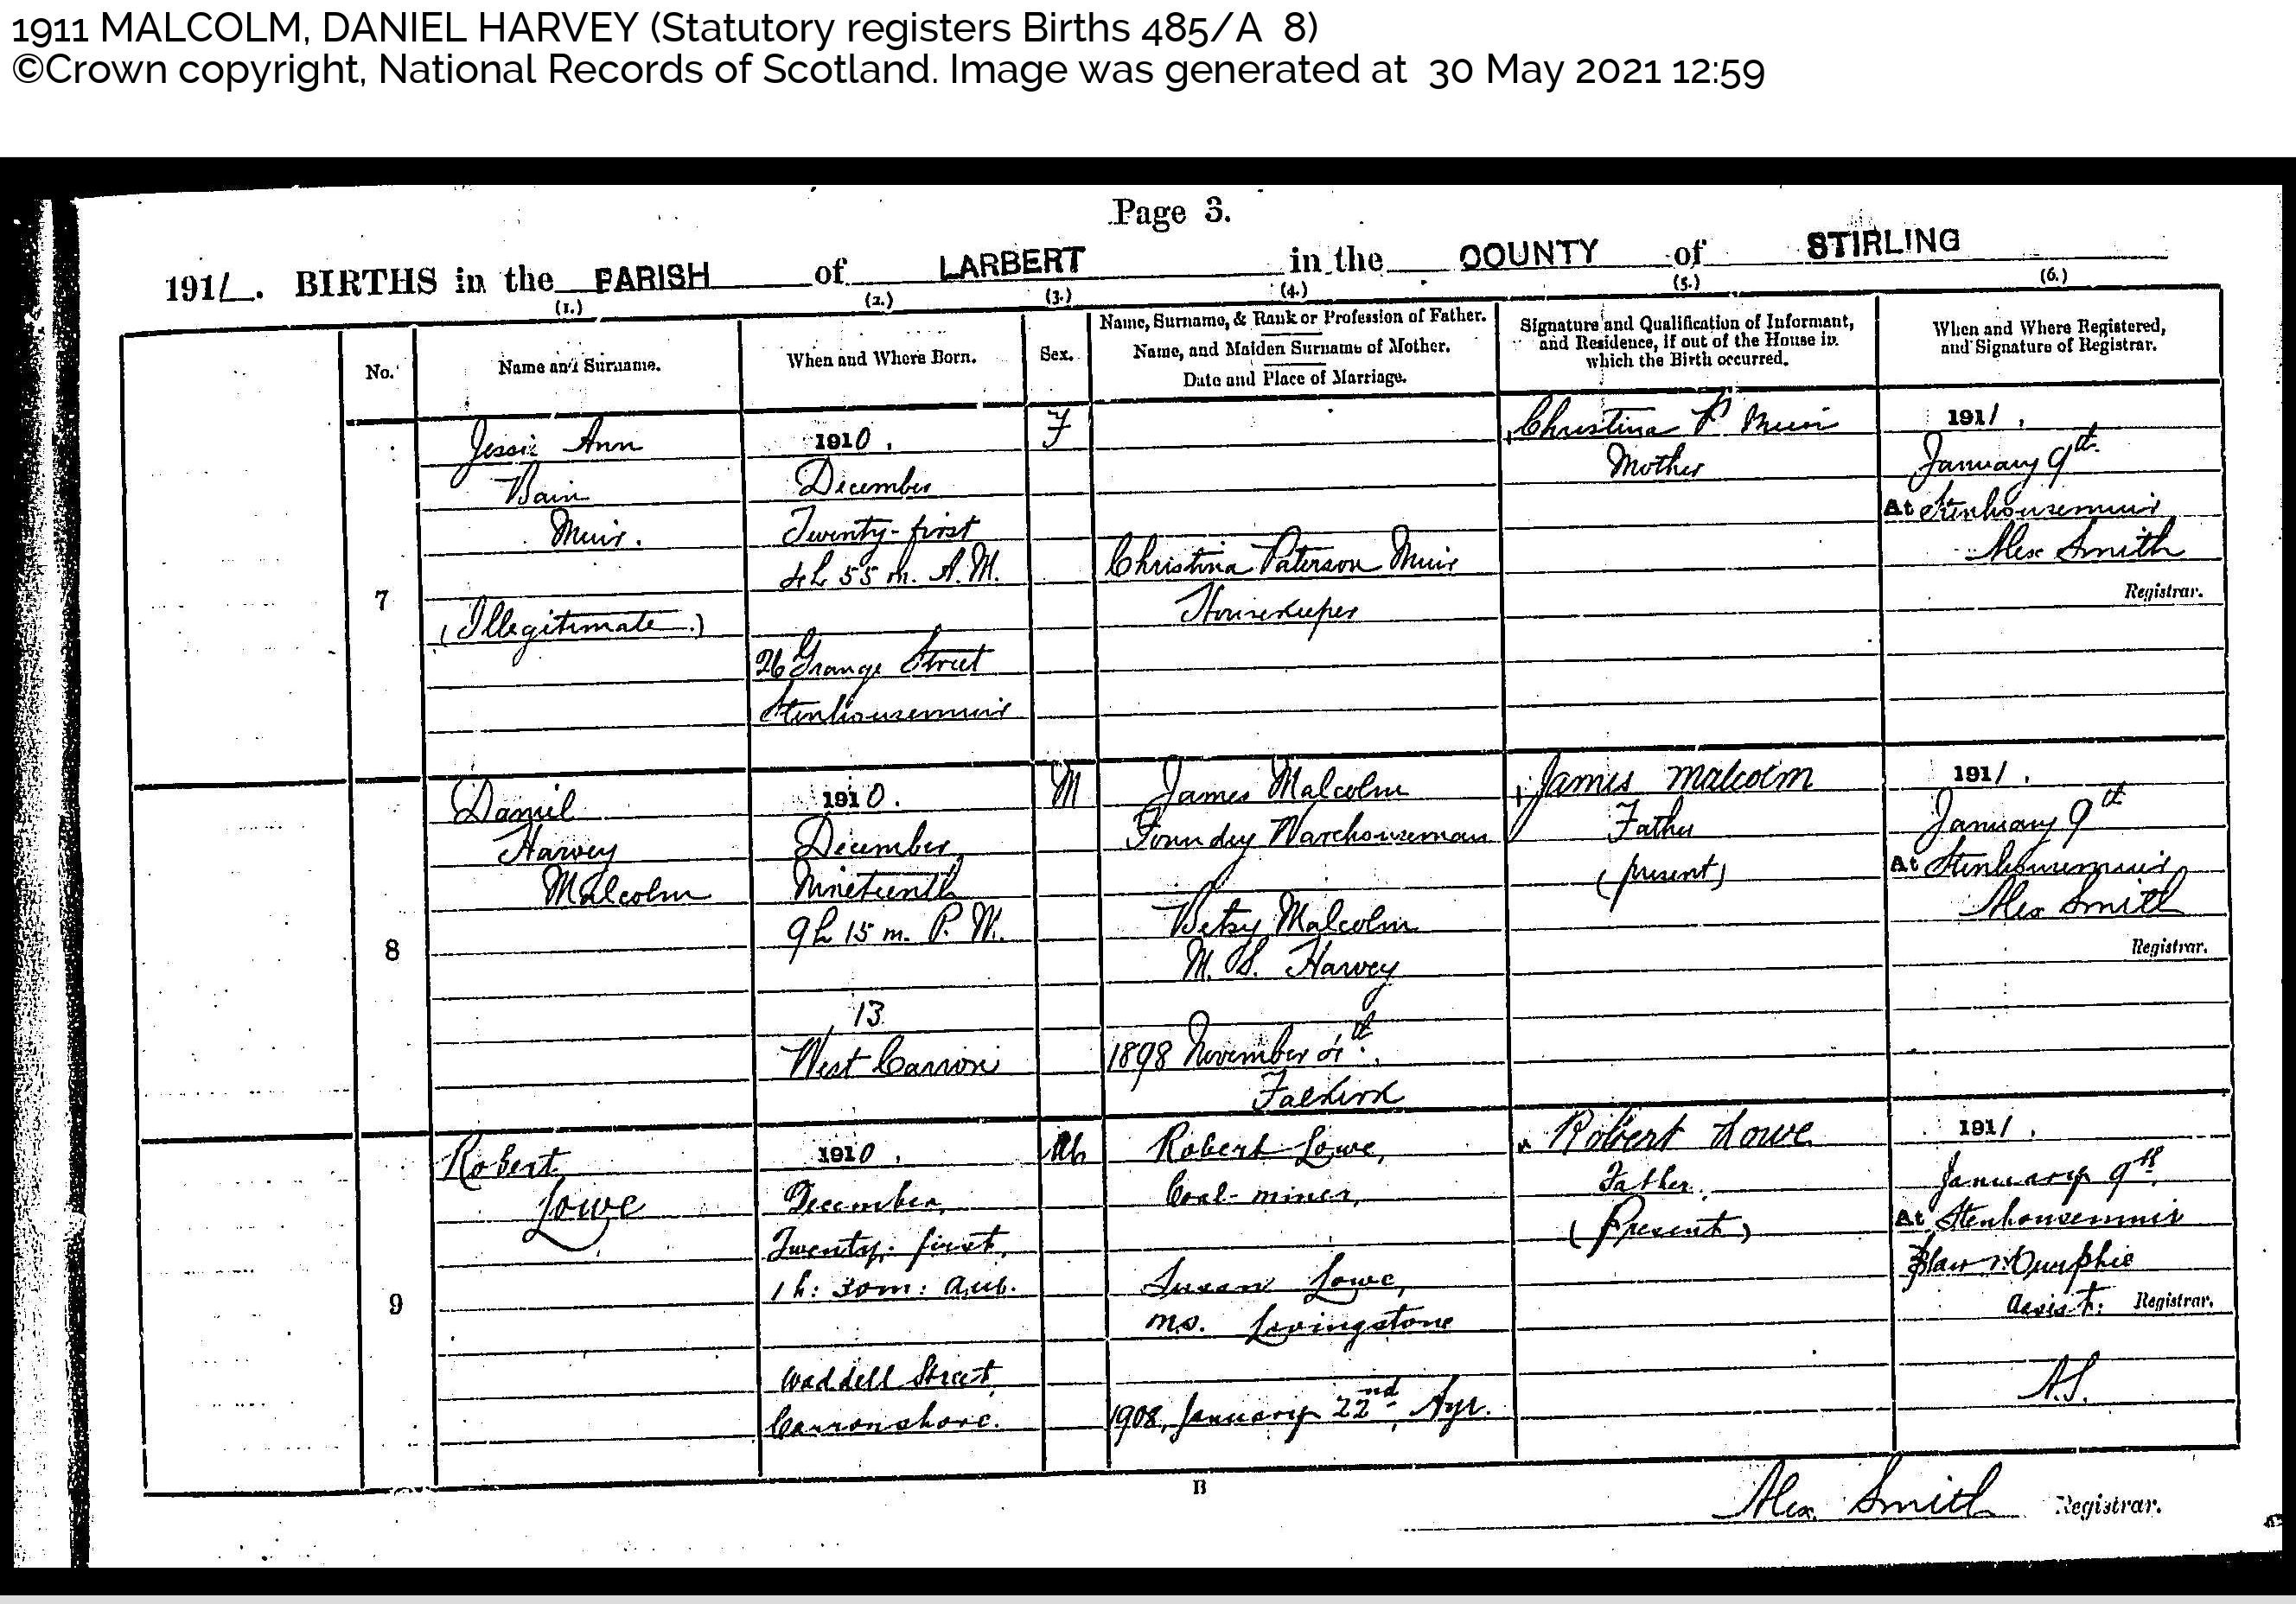 1911 MALCOLM, DANIEL HARVEY (Statutory registers Births 485/A 8)
©Crown copyright, National Records of Scotland. Image was generated at 30 May 2021 12:59
Page 3.
1911. BIRTHS in the PARISH of LARBERT in the COUNTY of STIRLING
(1.) (2.) (3.) (4.) (5.) (6.)
No.
Name and Surname.
When and Where Born.
Sex.
Name, Surname, & Rank or Profession of Father.
Name, and Maiden Surname of Mother.
Date and Place of Marriage.
Signature and Qualification of Informant,
and Residence, if out of the House in
which the Birth occurred.
When and Where Registered,
and Signature of Registrar.
7
Jessie Ann
Bain
Muir.
(Illegitimate.)
1910.
December
Twenty-first
4h 55 m. A.M.
26 Grange Street
Stenhousemuir
F
Christina Paterson Muir
Housekeeper
Christina P Muir
Mother
1911.
January 9th
At Stenhousemuir
Alex Smith
Registrar.
8
Daniel
Harvey
Malcolm
1910.
December
Nineteenth
9h 15 m. P.M.
13
West Carron
M
James Malcolm
Foundry Warehouseman
Betsy Malcolm
M.S. Harvey
1898 November 4th
Falkirk
James Malcolm
Father
(present)
1911.
January 9th
At Stenhousemuir
Alex Smith
Registrar.
9
Robert
Lowe
1910.
December,
Twenty-first,
1h: 30m: a.m.
Waddell Street,
Carronshore.
M
Robert Lowe,
Coal-miner,
Susan Lowe,
m.s. Livingstone
1908, January 22nd, Ayr.
Robert Lowe
Father.
(Present)
1911.
January 9th.
At Stenhousemuir
assist. Registrar.
A.S.
B
Alex. Smith Registrar.